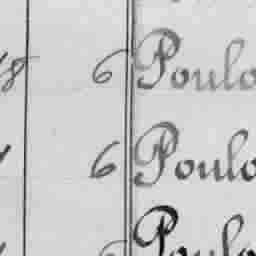 8 6 Poulo
6 Poulo
6 Poulo